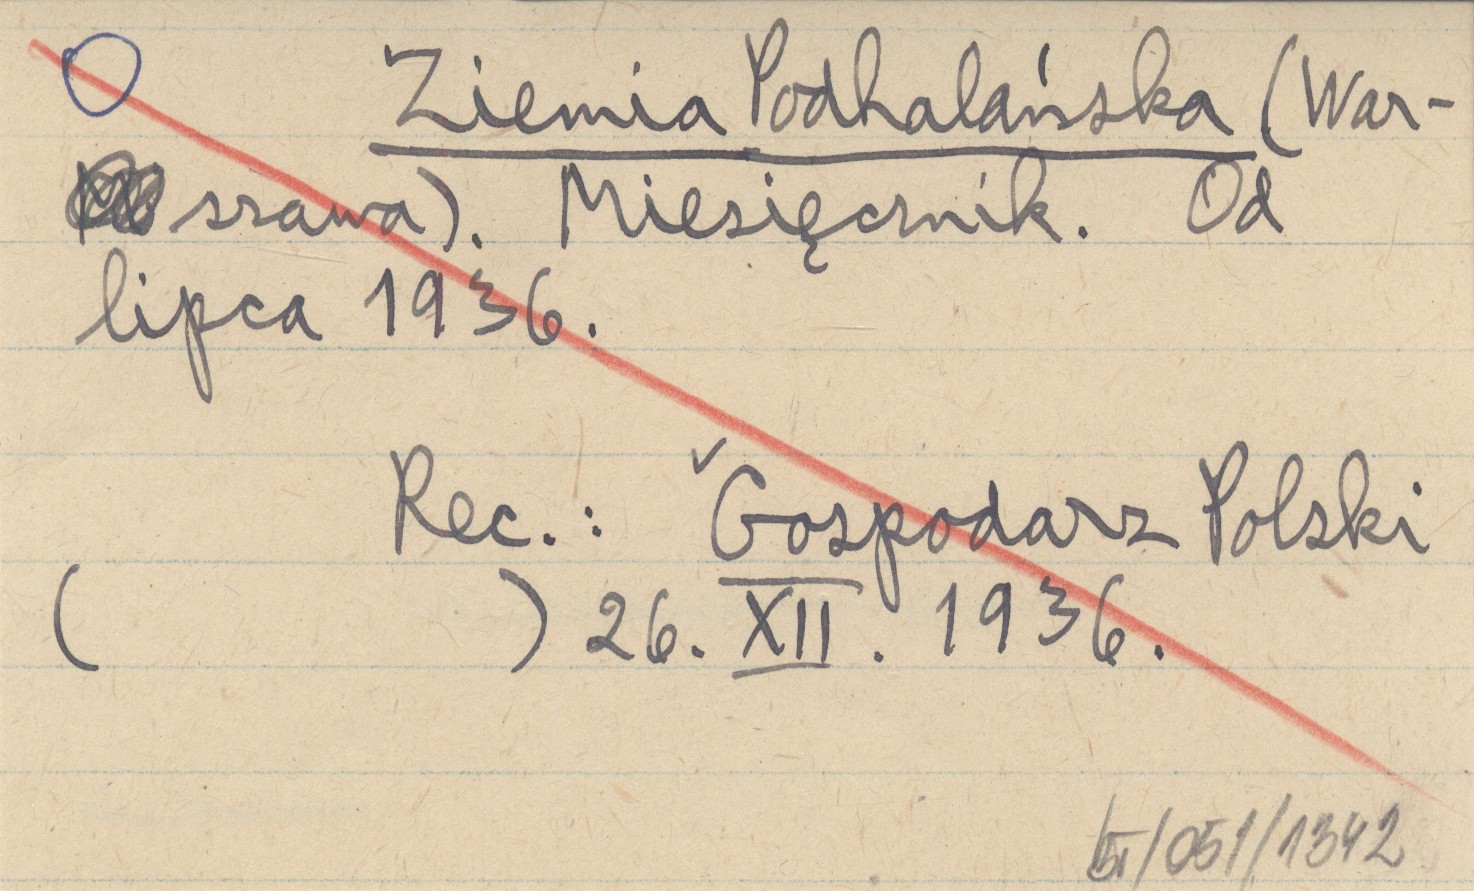 Ziemia Podhalańska (War-
szawa). Miesięcznik. Od
lipca 1936.
Rec.: Gospodarz Polski
( ) 26. XII. 1936.
/051/1342